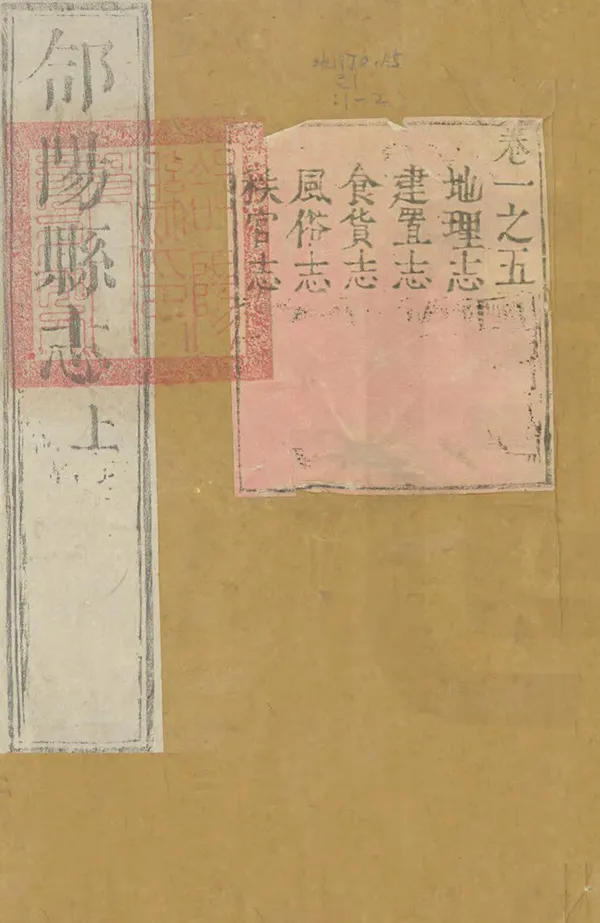 郃陽縣志
上
卷一之五
地理志
建置志
食貨志
風俗志
秩官志